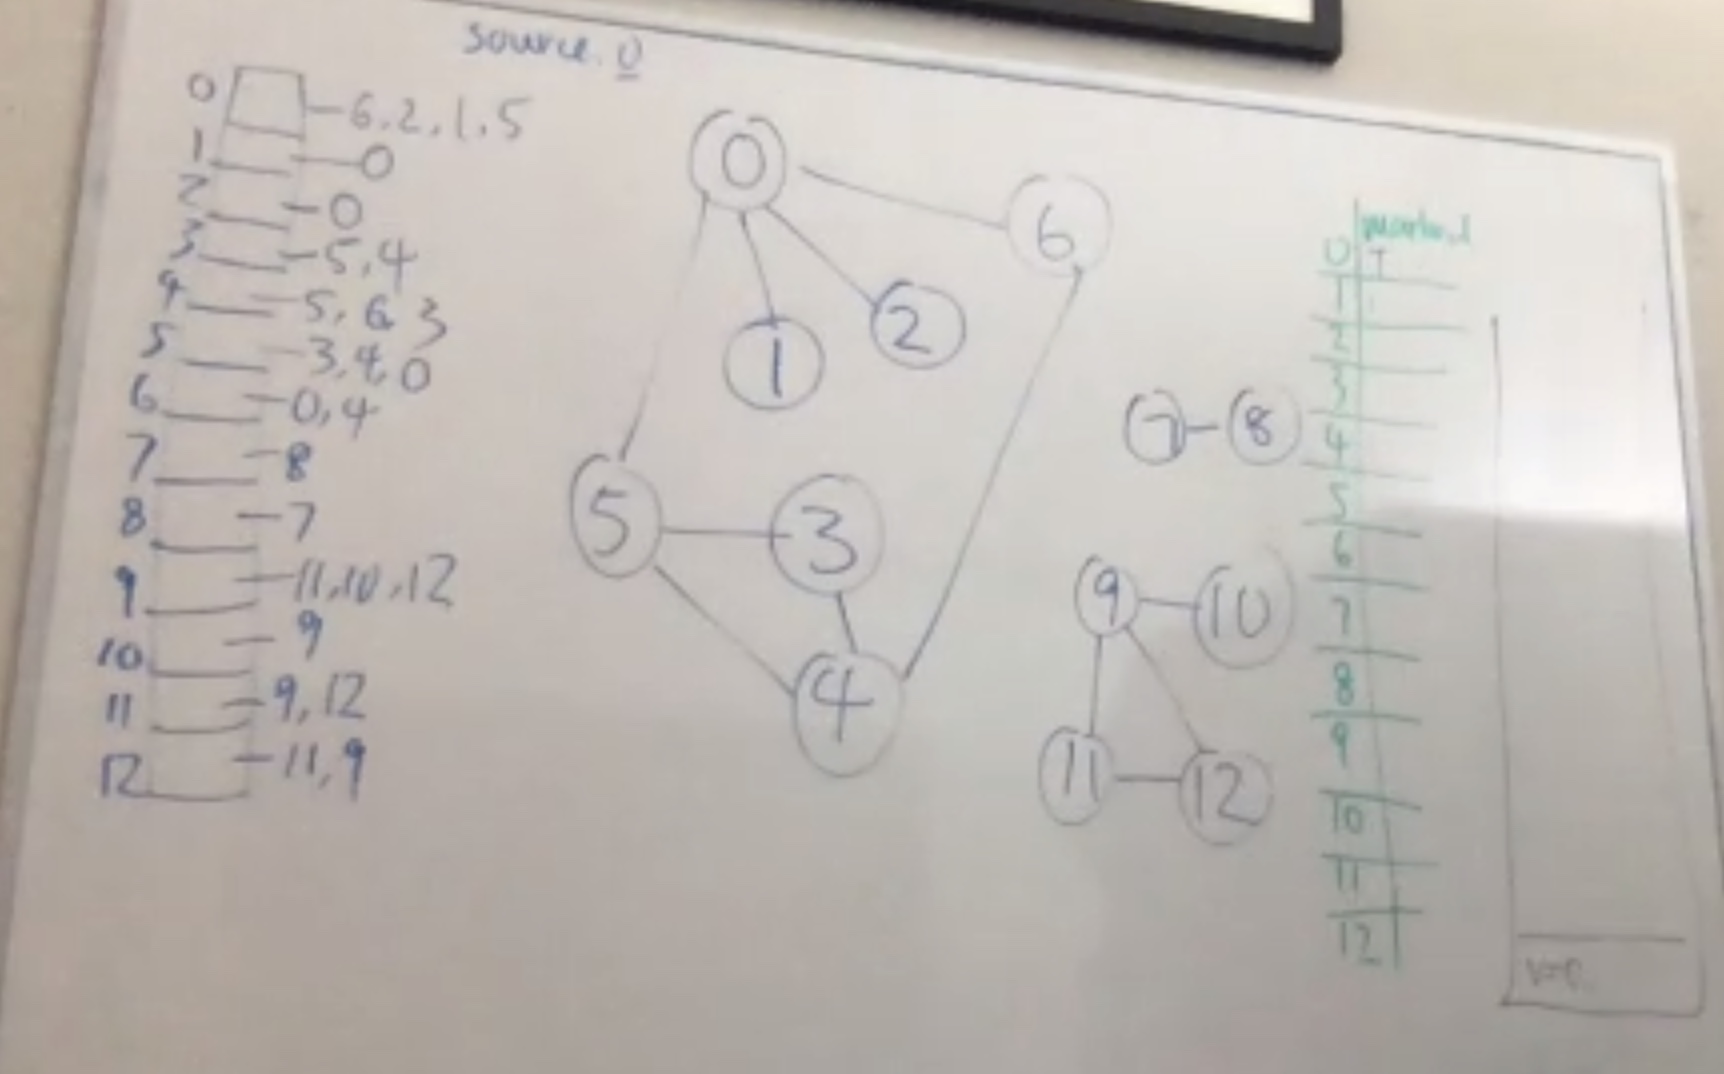 source. 0
0 -6,2,1,5
1 -0
2 -0
3 -5,4
4 -5,6 3
5 -3,4,0
6 -0,4
7 -8
8 -7
9 -11,10,12
10 - 9
11 -9,12
12 -11,9
0
6
1
2
5
3
4
7
8
9
10
11
12
marked
0 T
1
2
3
4
5
6
7
8
9
10
11
12
v=0